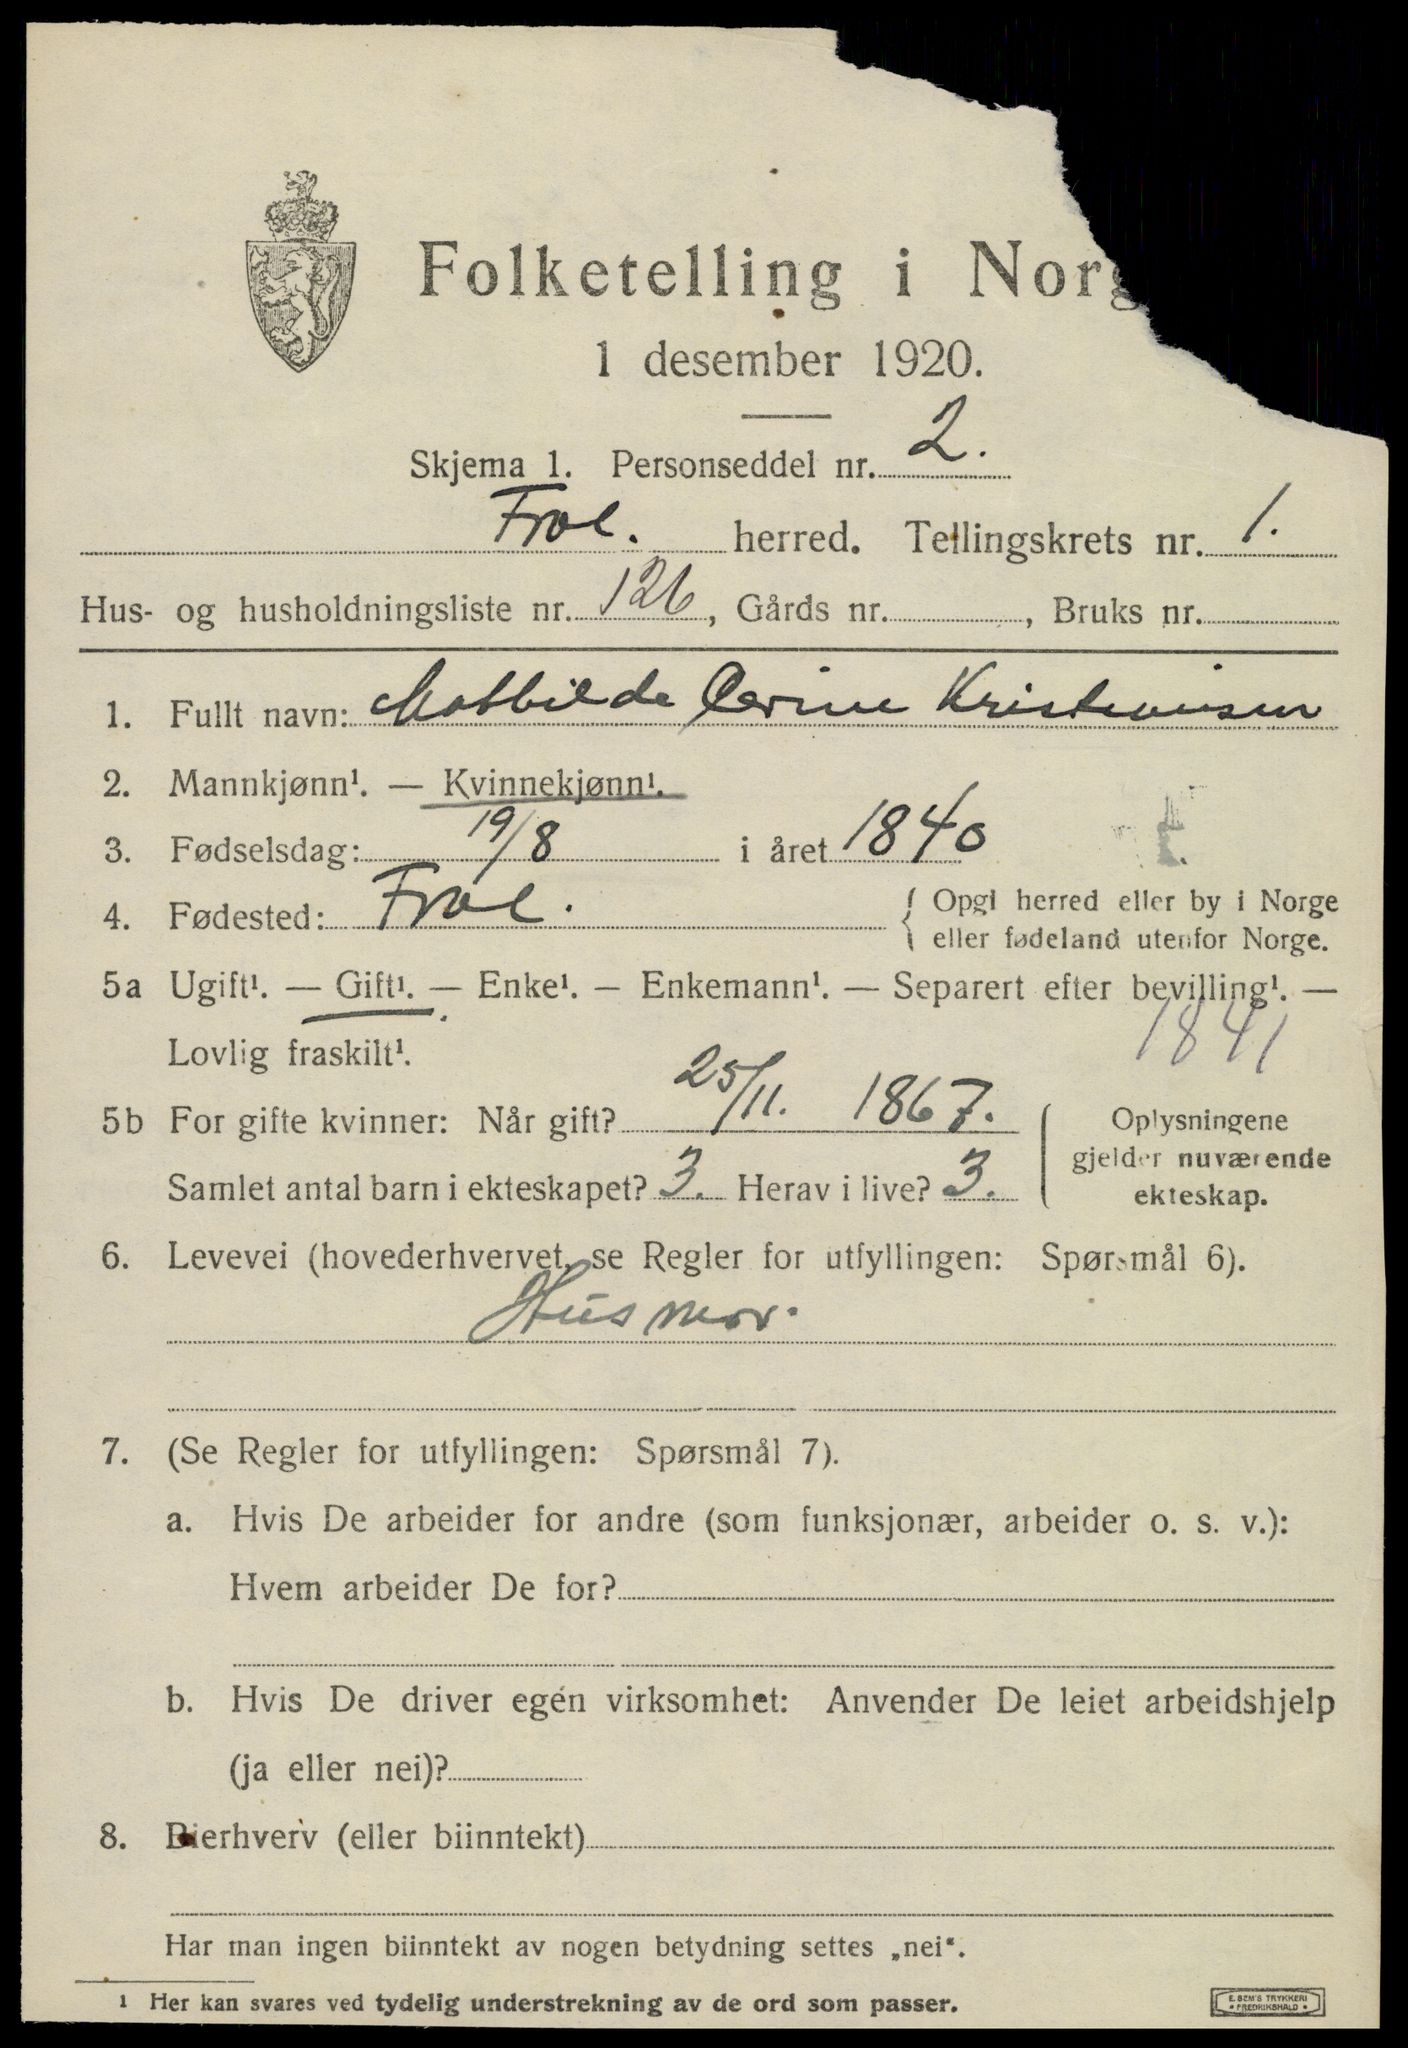 Folketelling i Norg
1 desember 1920.
Skjema 1. Personseddel nr. 2.
Frol. herred. Tellingskrets nr. 1.
Hus- og husholdningsliste nr. 126, Gårds nr. , Bruks nr.
1. Fullt navn: Mathilde Kristensen
2. Mannkjønn¹. — Kvinnekjønn¹.
3. Fødselsdag: 19/8 i året 1840
4. Fødested: Frol. { Opgi herred eller by i Norge
eller fødeland utenfor Norge.
5a Ugift¹. — Gift¹. — Enke¹. — Enkemann¹. — Separert efter bevilling¹. —
Lovlig fraskilt¹. 1841
5b For gifte kvinner: Når gift? 25/11. 1867. Oplysningene
gjelder nuværende
Samlet antal barn i ekteskapet? 3. Herav i live? 3. ekteskap.
6. Levevei (hovederhvervet, se Regler for utfyllingen: Spørsmål 6).
Husmor.
7. (Se Regler for utfyllingen: Spørsmål 7).
a. Hvis De arbeider for andre (som funksjonær, arbeider o. s. v.):
Hvem arbeider De for?
b. Hvis De driver egen virksomhet: Anvender De leiet arbeidshjelp
(ja eller nei)?
8. Bierhverv (eller biinntekt)
Har man ingen biinntekt av nogen betydning settes „nei“.
1 Her kan svares ved tydelig understrekning av de ord som passer.
E. SEM'S TRYKKERI
• FREDRIKSHALD •